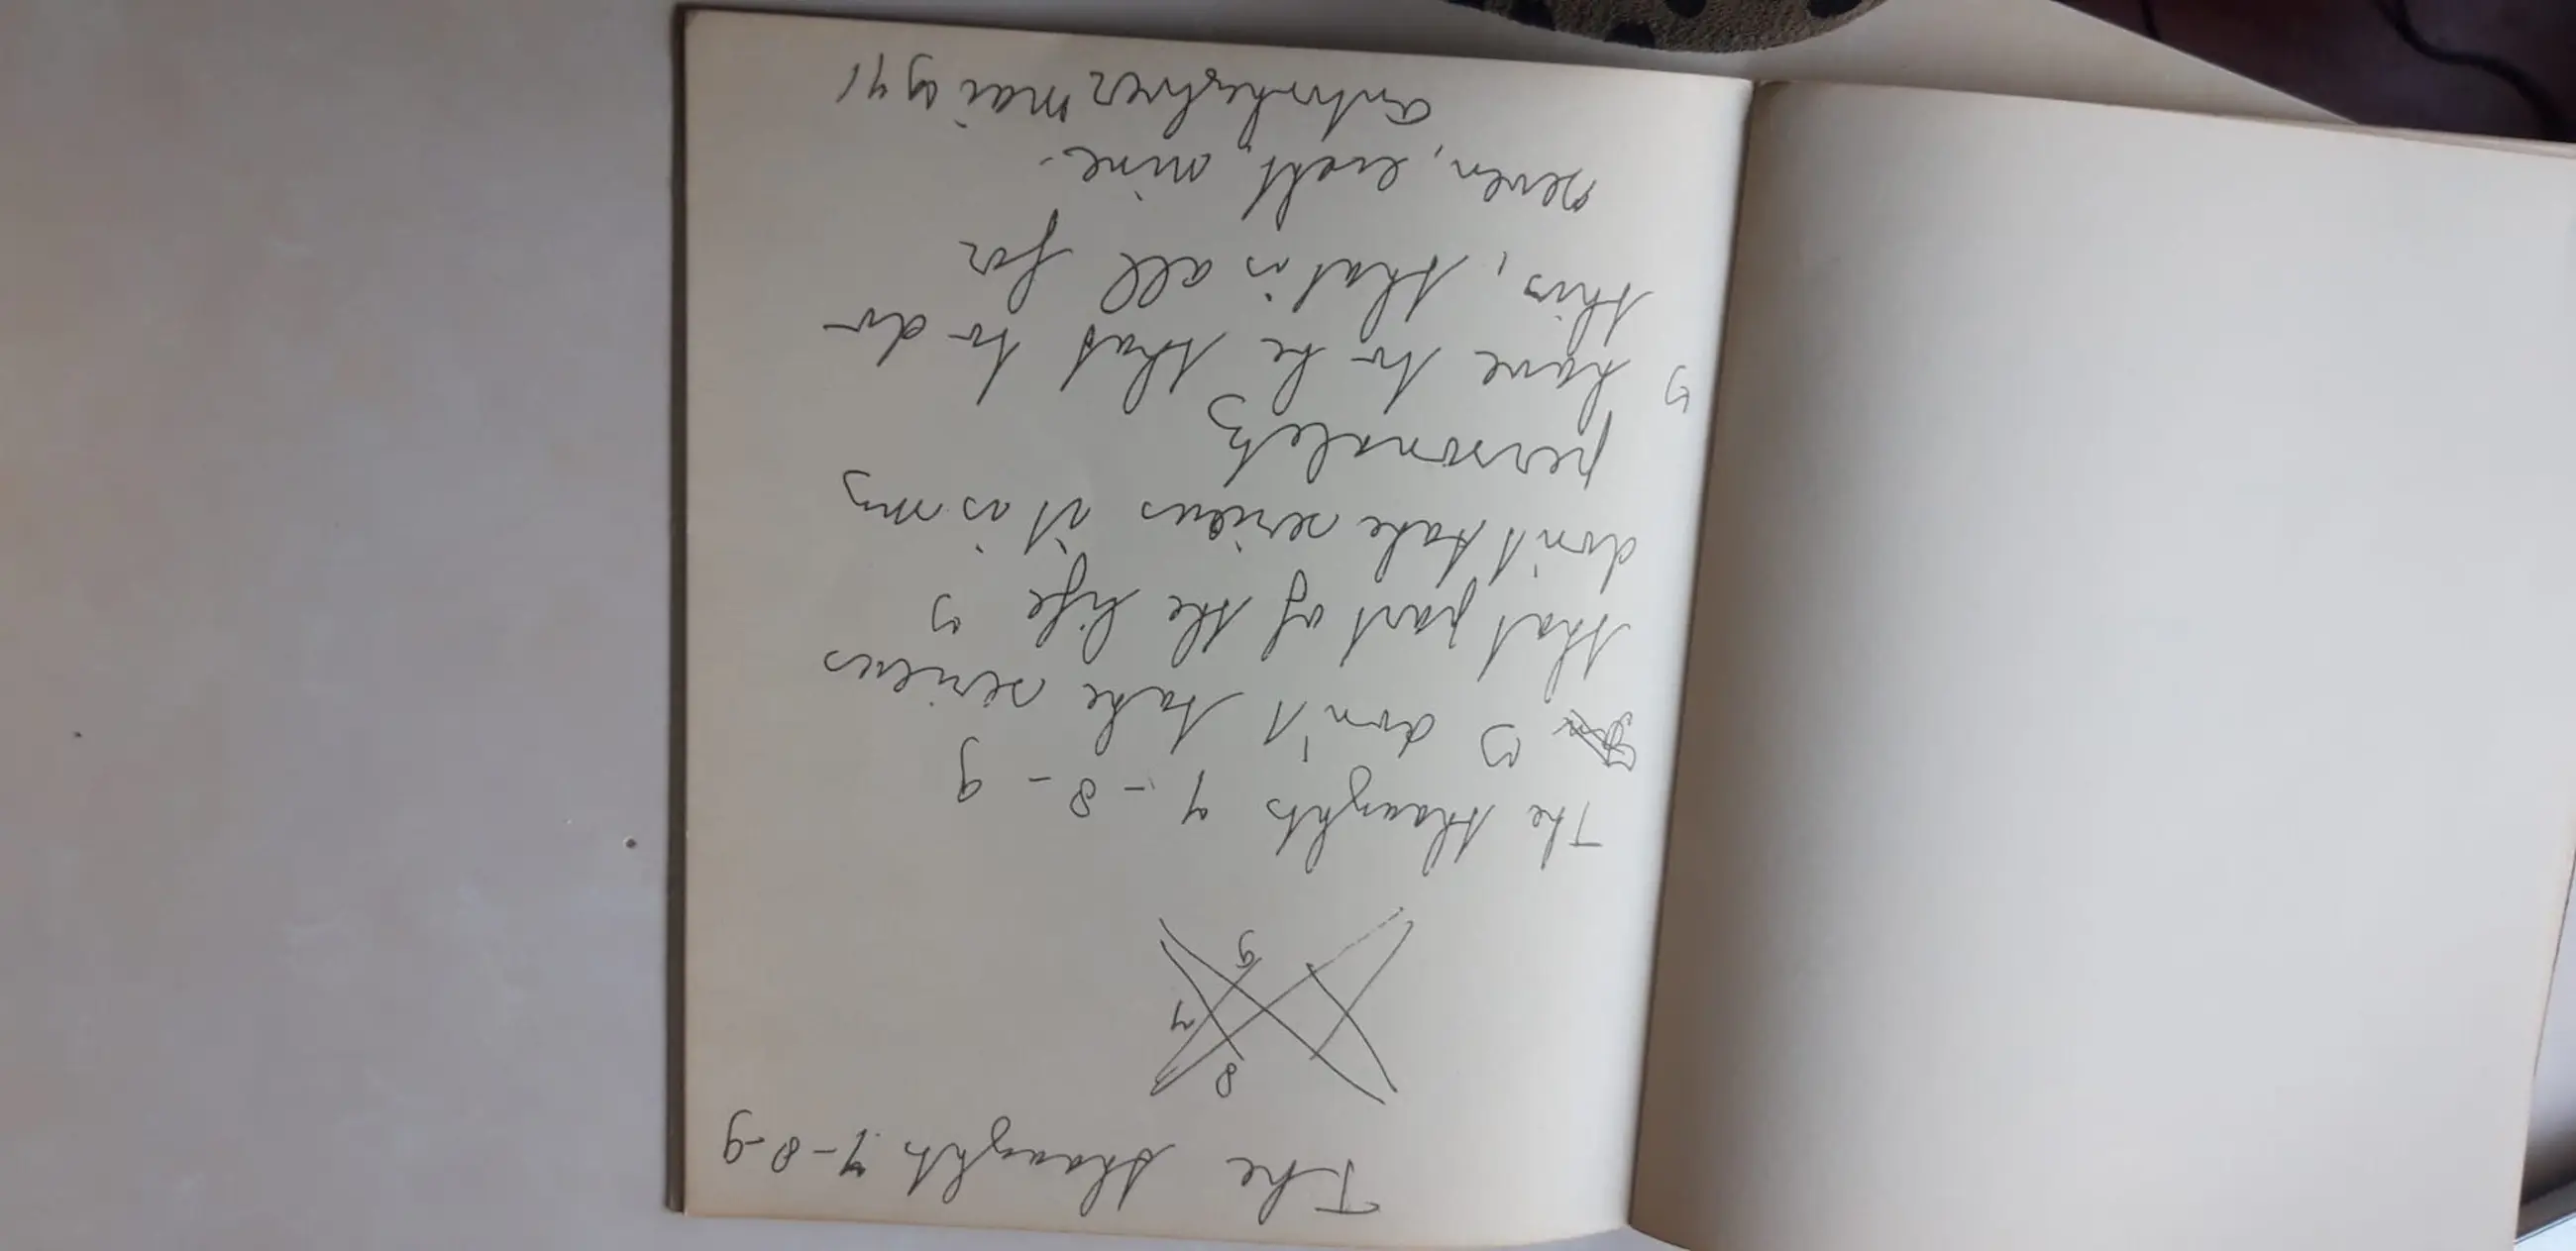 The thaughts 7-8-9
8
7
9
The thaughts 7-8-9
I don't take serieus
that part of the life I
don't take serieus it is my
personaletz
I have to be that to do
this, that is all for
seven, eight, nine.
mai 1971